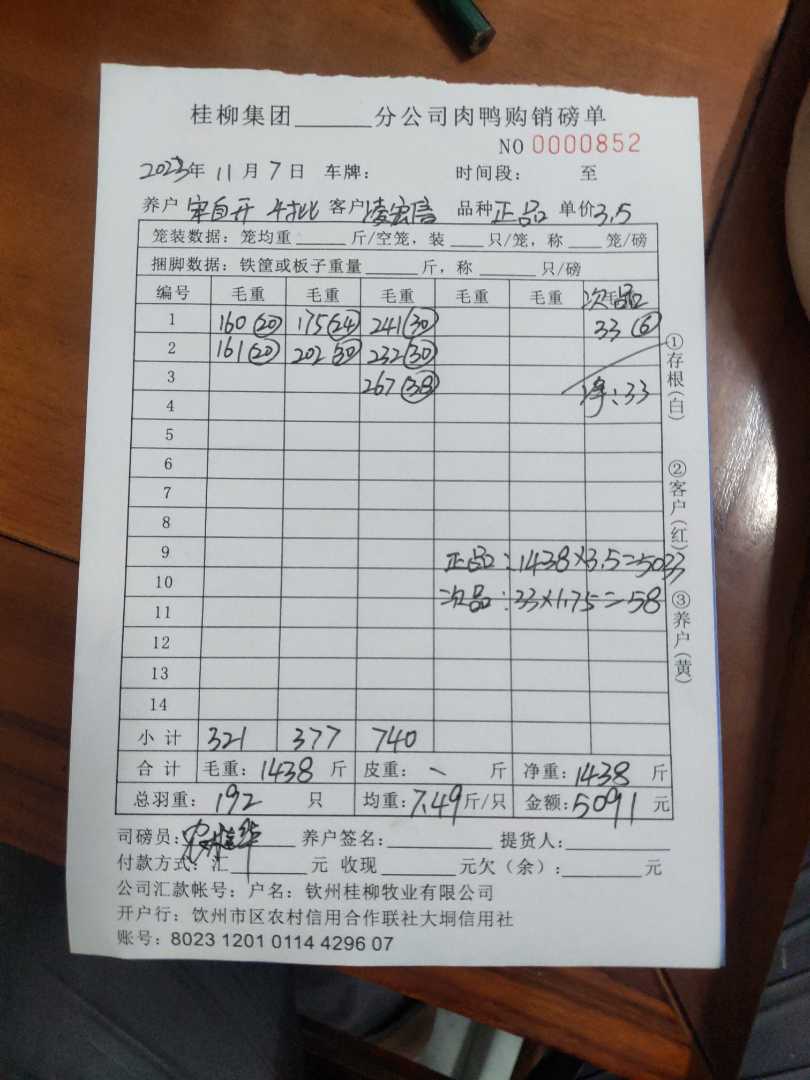 桂柳集团______分公司肉鸭购销磅单
NO 0000852
2023年 11 月 7 日 车牌： 时间段： 至
养户 宋自开 客户 凌宏信 品种 正品 单价 3.5
笼装数据：笼均重_____斤/空笼，装___只/笼，称___笼/磅
捆脚数据：铁筐或板子重量_____斤，称_____只/磅
编号 毛重 毛重 毛重 毛重 毛重 次品
1 160(20) 175(24) 241(30) 33(6)
2 161(20) 202(30) 232(30)
3 267(38) 净：33
4
5
6
7
8
9 正品：1438×3.5=5033
10
11 次品：33×1.75=58
12
13
14
小计 321 377 740
合计 毛重：1438 斤 皮重：- 斤 净重：1438 斤
总羽重：192 只 均重：7.49斤/只 金额：5091 元
司磅员： 养户签名：________ 提货人：________
付款方式：汇______元 收现______元欠（余）：______元
公司汇款帐号：户名：钦州桂柳牧业有限公司
开户行：饮州市区农村信用合作联社大垌信用社
账号：8023 1201 0114 4296 07
①存根(白)
②客户(红)
③养户(黄)